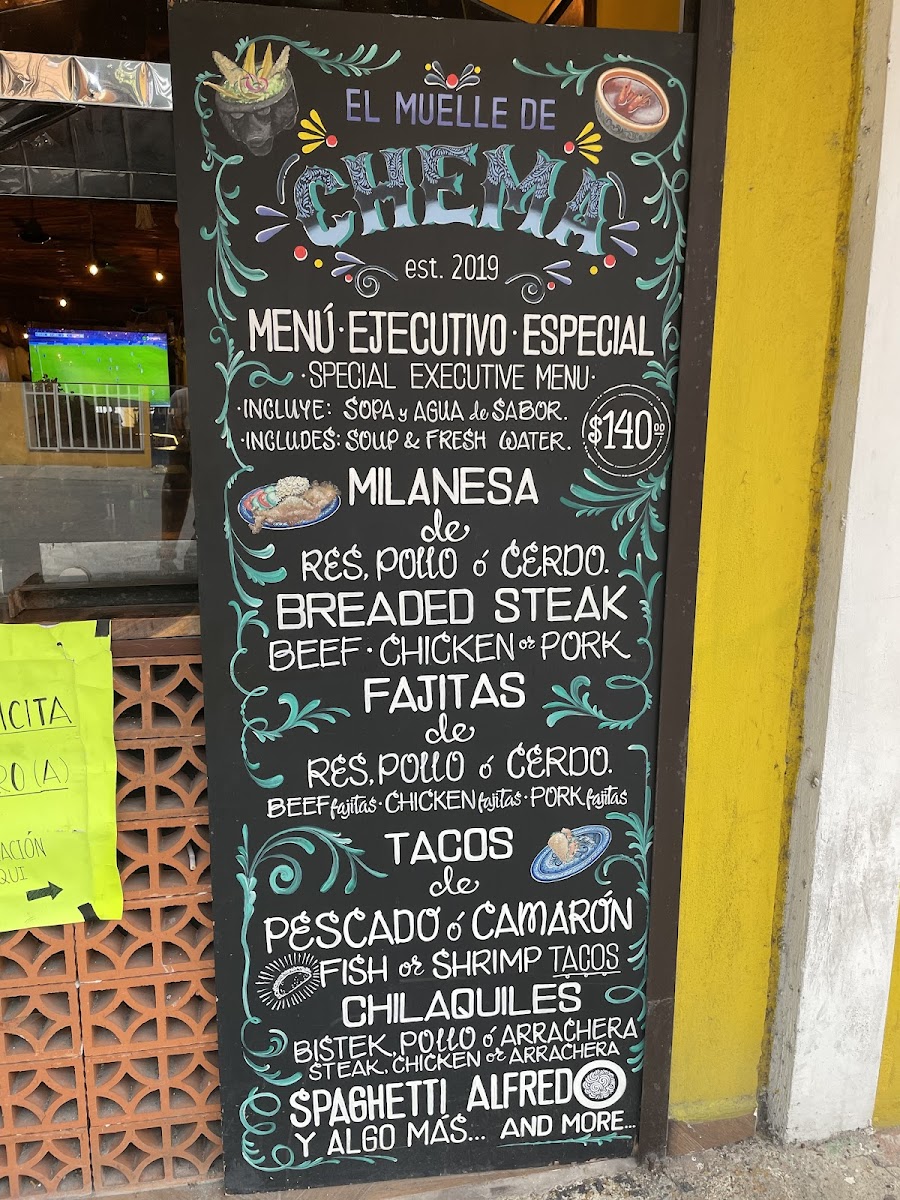 EL MUELLE DE
CHEMA
est. 2019
MENÚ · EJECUTIVO · ESPECIAL
· SPECIAL EXECUTIVE MENU ·
· INCLUYE: SOPA y AGUA de SABOR.
· INCLUDES: SOUP & FRESH WATER.
$140.00
MILANESA
de
RES, POLLO ó CERDO.
BREADED STEAK
BEEF · CHICKEN or PORK
FAJITAS
de
RES, POLLO ó CERDO.
BEEF fajitas · CHICKEN fajitas · PORK fajitas
TACOS
de
PESCADO ó CAMARÓN
FISH or SHRIMP TACOS
CHILAQUILES
BISTEK, POLLO ó ARRACHERA
STEAK, CHICKEN or ARRACHERA
SPAGHETTI ALFREDO
Y ALGO MÁS... AND MORE...